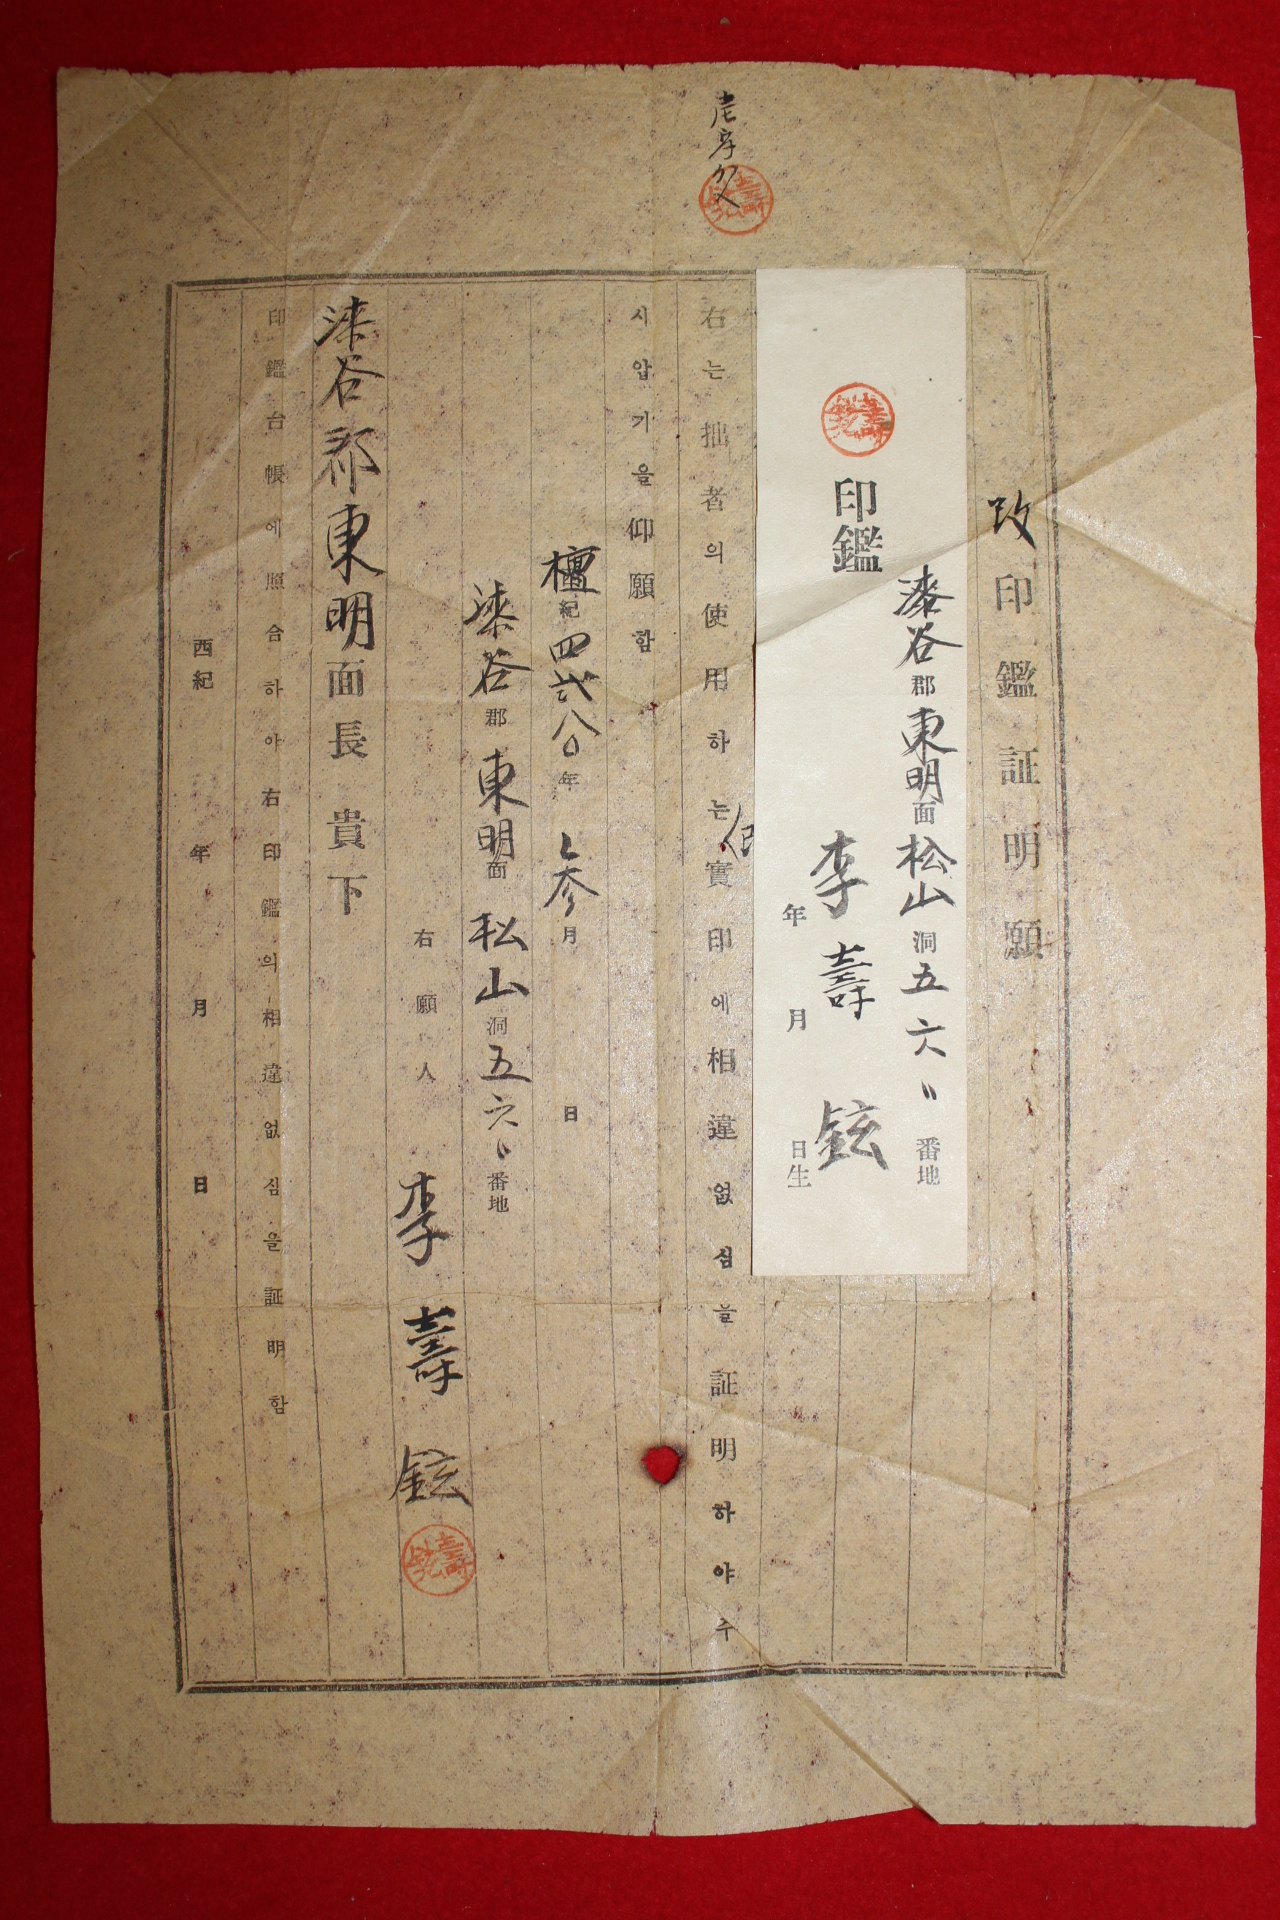 改印鑑証明願
漆谷郡東明面松山洞五六〃番地
印鑑 李壽鉉
年 月 日生
右는拙者의使用하는實印에相違없심을証明하야수
시압기을仰願함
檀紀四貮八〇年 參月 日
漆谷郡東明面松山洞五六〃番地
右願人 李壽鉉
漆谷郡東明面長 貴下
印鑑台帳에照合하아右印鑑의相違없심을証明함
西紀 年 月 日